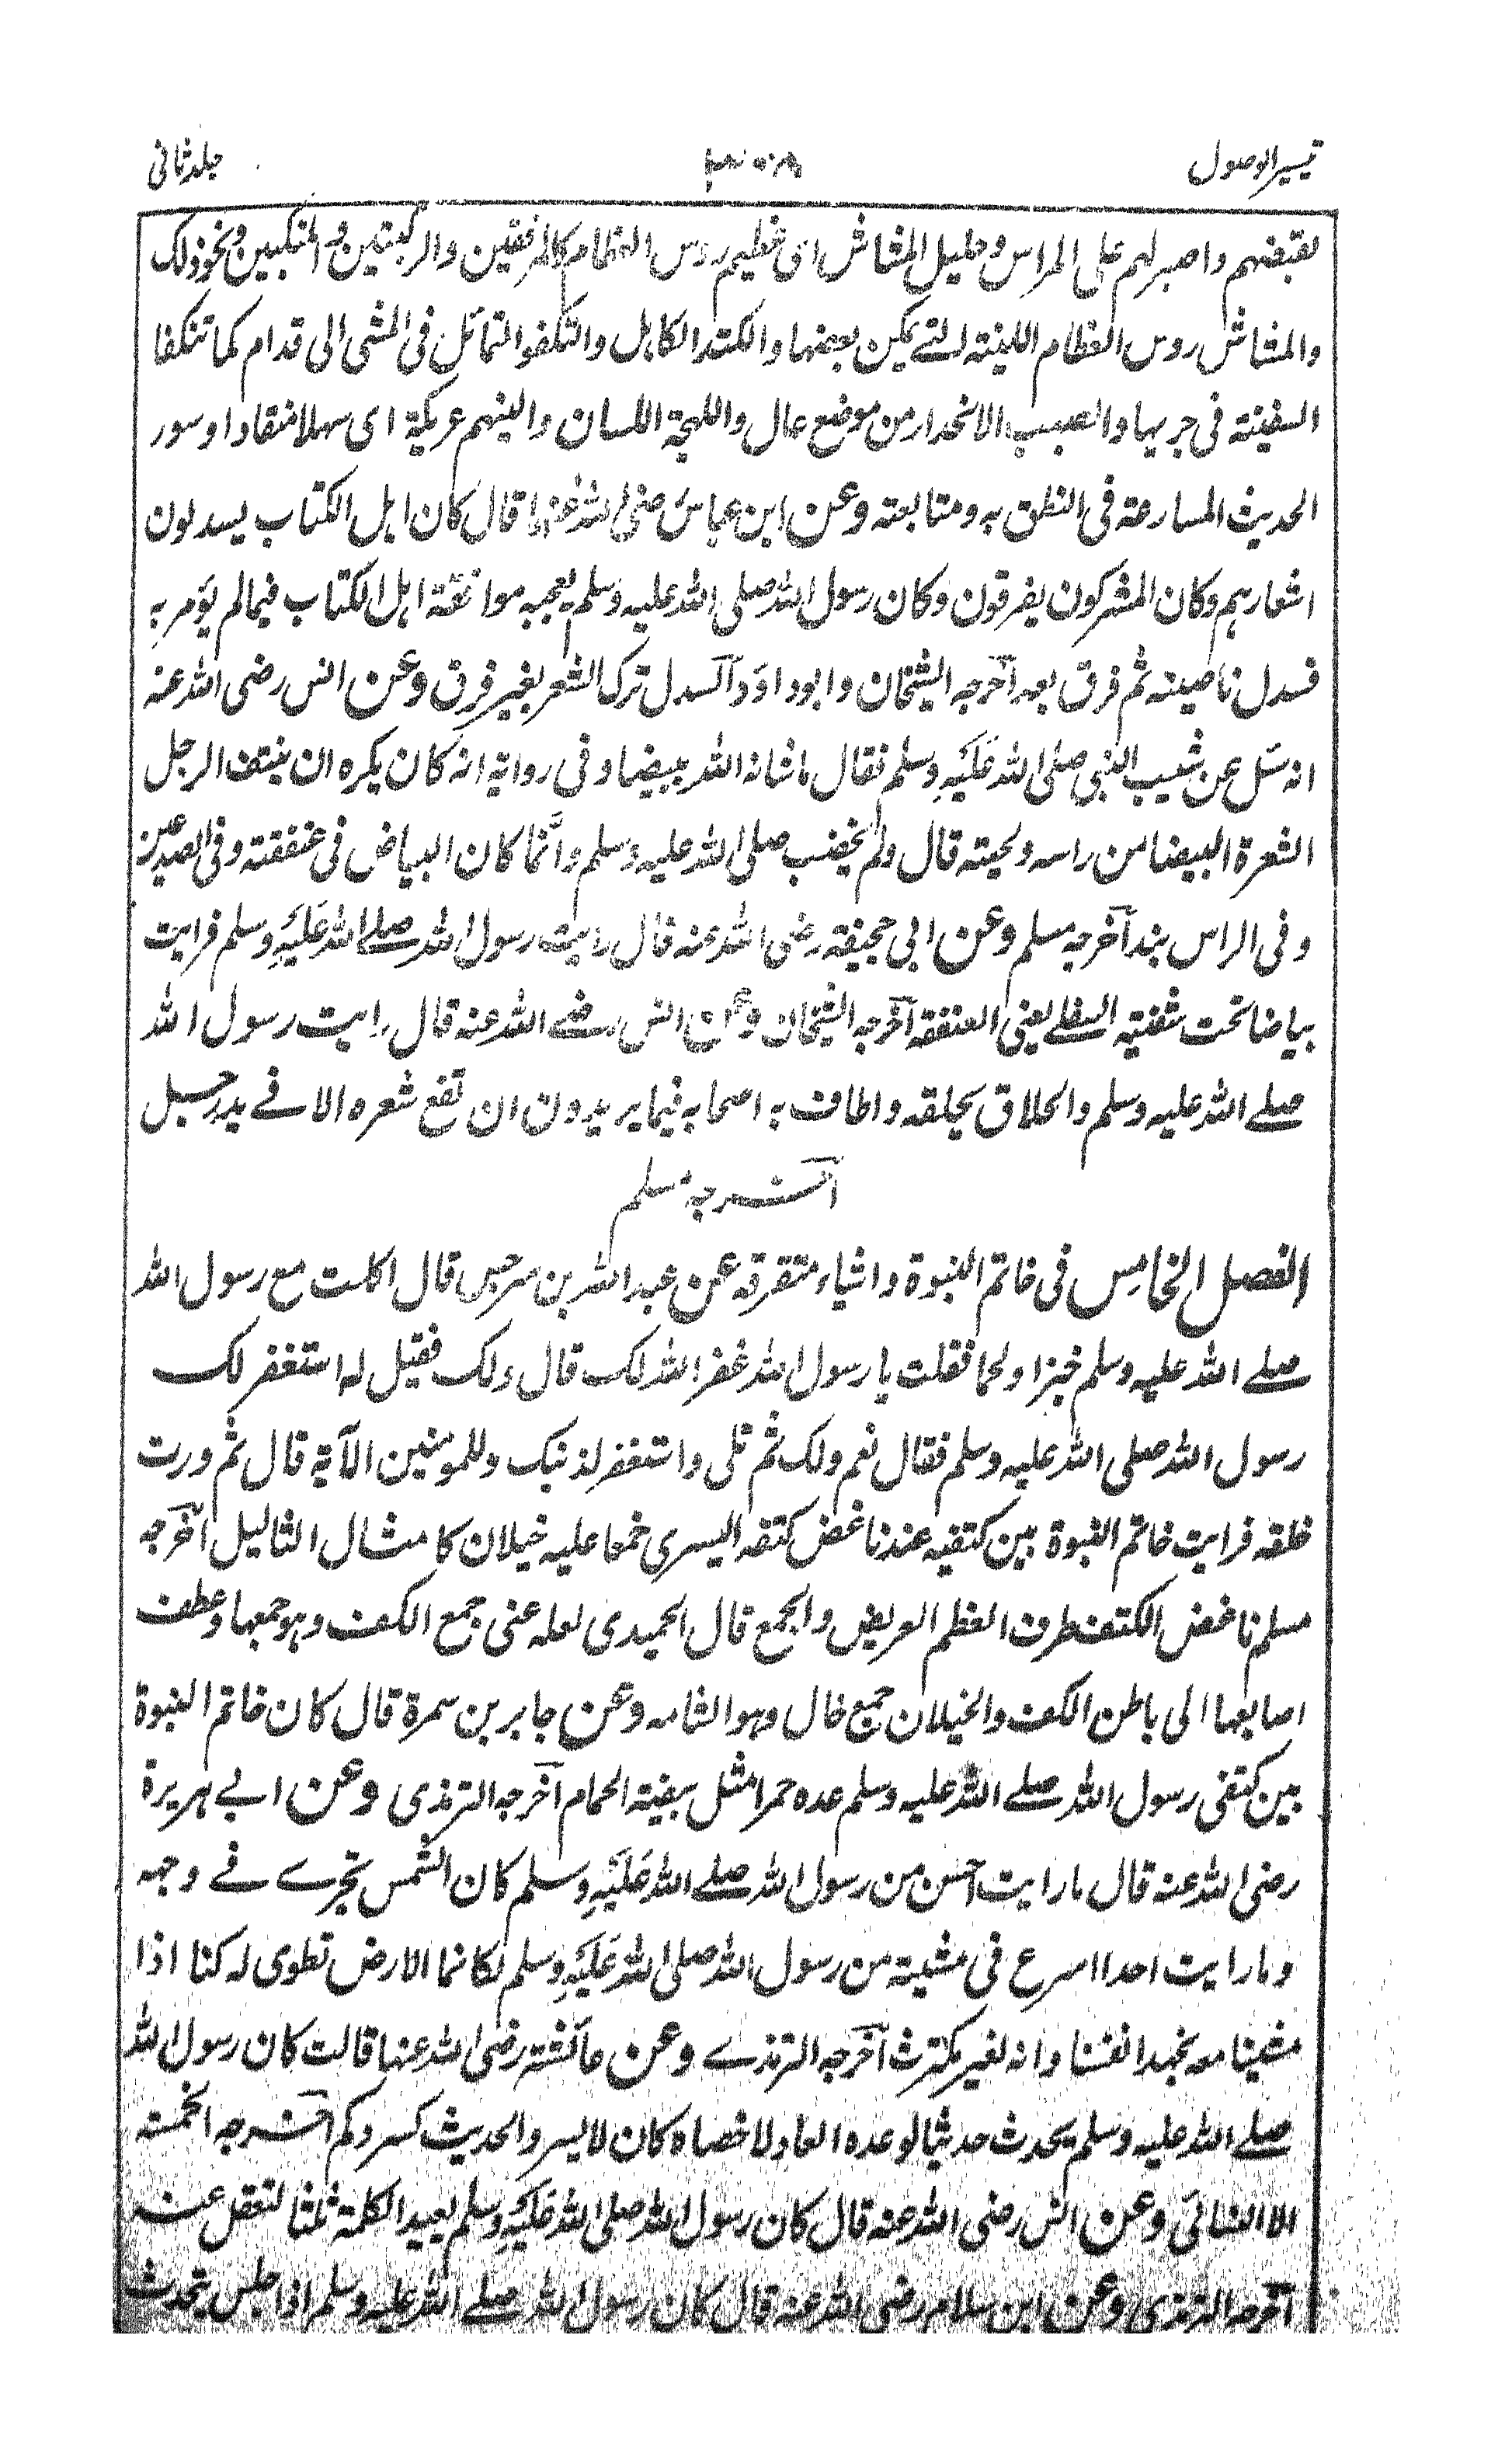 تیسیر الوصول
جلد ثانی
بقبضهم واصبرلهم علی المراس وجلیل المشاش ای عظیم روس العظام کالمرفقین والرکبتین والمنکبین ونحو ذلک
والمشاش روس العظام اللینته التے یمکن بعضها والکتد الکاہل والتکفوا لتمائل فی المشی الی قدام کما تتکفا
السفینته فی جریها والصبب الانحدار من موضع عال واللهجة اللسان والینهم عریکة ای سهلا منقادا وسور
الحدیث المسارعة فی النطق به ومتابعته وعن ابن عباس رضی اللہ عنہا قال کان اہل الکتاب یسدلون
اشعارہم وکان المشرکون یفرقون وکان رسول اللہ صلی اللہ علیه وسلم یعجبه موافقة اہل الکتاب فیما لم یؤمر به
فسدل ناصیته ثم فرق بعد آخرجه الشیخان وابوداؤد آلسدل ترک الشعر بغیر فرق وعن انس رضی اللہ عنه
انه سئل عن شیب النبی صلی اللہ عَلَیْهِ وسلم فقال ما شانه اللہ ببیضا وفی روایة انه کان یکره ان ینتف الرجل
الشعرة البیضا من راسه ولحیته قال ولم یخضب صلی اللہ علیه وسلم وانَّما کان البیاض فی عنفقته وفی الصدغین
وفی الراس نبذ آخرجه مسلم وعن ابی جحیفة رضی اللہ عنه قال رایت رسول اللہ صلے اللہ عَلَیْهِ وسلم فرایت
بیاضا تحت شفتیه السفلے یعنی العنفقه آخرجه الشیخان وعن انس رضے اللہ عنه قال رایت رسول اللہ
صلے اللہ علیه وسلم والحلاق یحلقه واطاف به اصحابه فیما یریدون ان تقع شعره الا فے ید رجل
آخرجه مسلم
الفصل الخامس فی خاتم النبوة واشیاء متفرقه عن عبد اللہ بن سرجس قال اکلت مع رسول اللہ
صلے اللہ علیه وسلم خبزا ولحما فقلت یا رسول اللہ غفر اللہ لک قال ولک فقیل له استغفر لک
رسول اللہ صلی اللہ علیه وسلم فقال نعم ولک ثم تلی واستغفر لذنبک وللمومنین الآیة قال ثم ورت
خلفه فرایت خاتم النبوة بین کتفیه عند ناغض کتفه الیسری جمعا علیه خیلان کامثال الثالیل آخرجه
مسلم ناغض الکتف طرف العظم العریض والجمع قال الحمیدی لعله عنی جمع الکف وہو جمعها وعطف
اصابعها الی باطن الکف والخیلان جمع خال وہو الشامه وعن جابر بن سمرة قال کان خاتم النبوة
بین کتفی رسول اللہ صلے اللہ علیه وسلم غده حمرا مثل بیضة الحمام آخرجه الترمذی وعن ابے ہریرة
رضی اللہ عنه قال ما رایت آحسن من رسول اللہ صلے اللہ عَلَیْهِ وسلم کان الشمس تجرے فے وجهه
وما رایت احدا اسرع فی مشیته من رسول اللہ صلی اللہ عَلَیْهِ وسلم لکانما الارض تطوی له کنا اذا
مشینا معه نجهد انفسنا وانه لغیر مکترث آخرجه الترمذے وعن عآئشة رضی اللہ عنها قالت کان رسول اللہ
صلے اللہ علیه وسلم یحدث حدیثا لو عده العاد لاحصاه کان لا یسرد الحدیث کسردکم آخرجه الخمسته
الا النسائی وعن انس رضی اللہ عنه قال کان رسول اللہ صلی اللہ عَلَیْهِ وسلم یعید الکلمة ثلثا لتعقل عنه
آخرجه الترمذی وعن ابن سلام رضی اللہ عنه قال کان رسول اللہ صلے اللہ علیه وسلم اذا جلس یتحدث